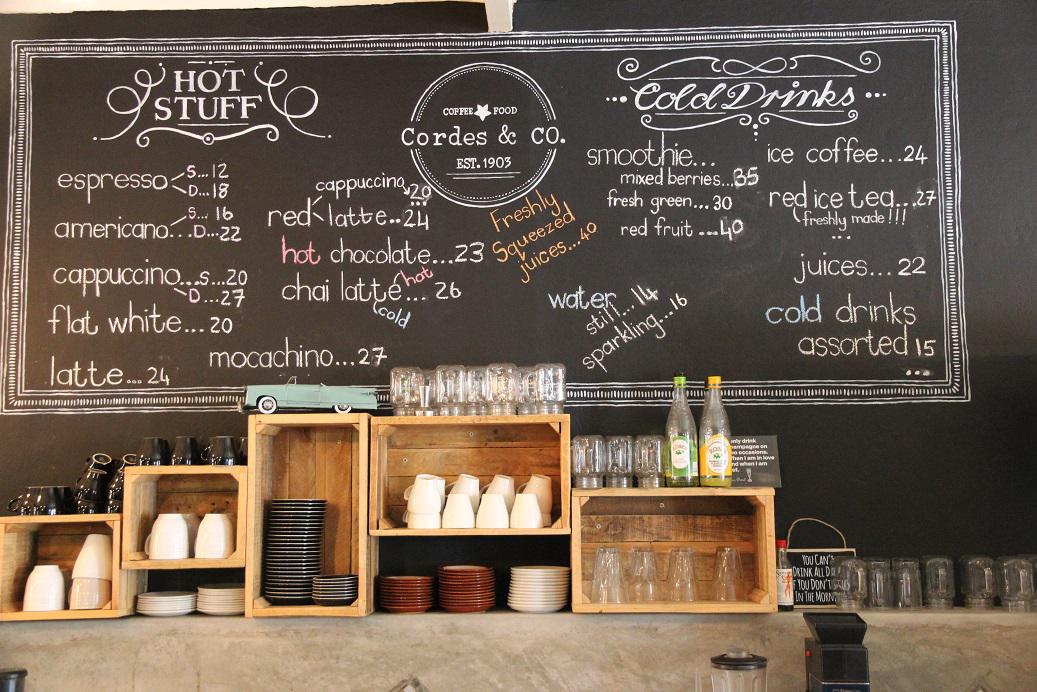 HOT
STUFF
espresso S...12
D...18
americano... S... 16
D...22
cappuccino...S...20
D...27
flat white... 20
latte... 24
red cappuccino 20
latte...24
hot chocolate...23
chai latte... 26
hot
cold
mocachino...27
COFFEE FOOD
Cordes & CO.
EST. 1903
Freshly
Squeezed
juices...40
water
still...14
sparkling...16
...Cold Drinks...
smoothie...
mixed berries...35
fresh green...30
red fruit ...40
ice coffee...24
red ice tea...27
freshly made!!!
...
juices... 22
cold drinks
assorted 15
...
only drink
champagne on
two occasions.
When I am in love
and when I am
YOU CAN'T
DRINK ALL D
IF YOU DON'T
IN THE MORN